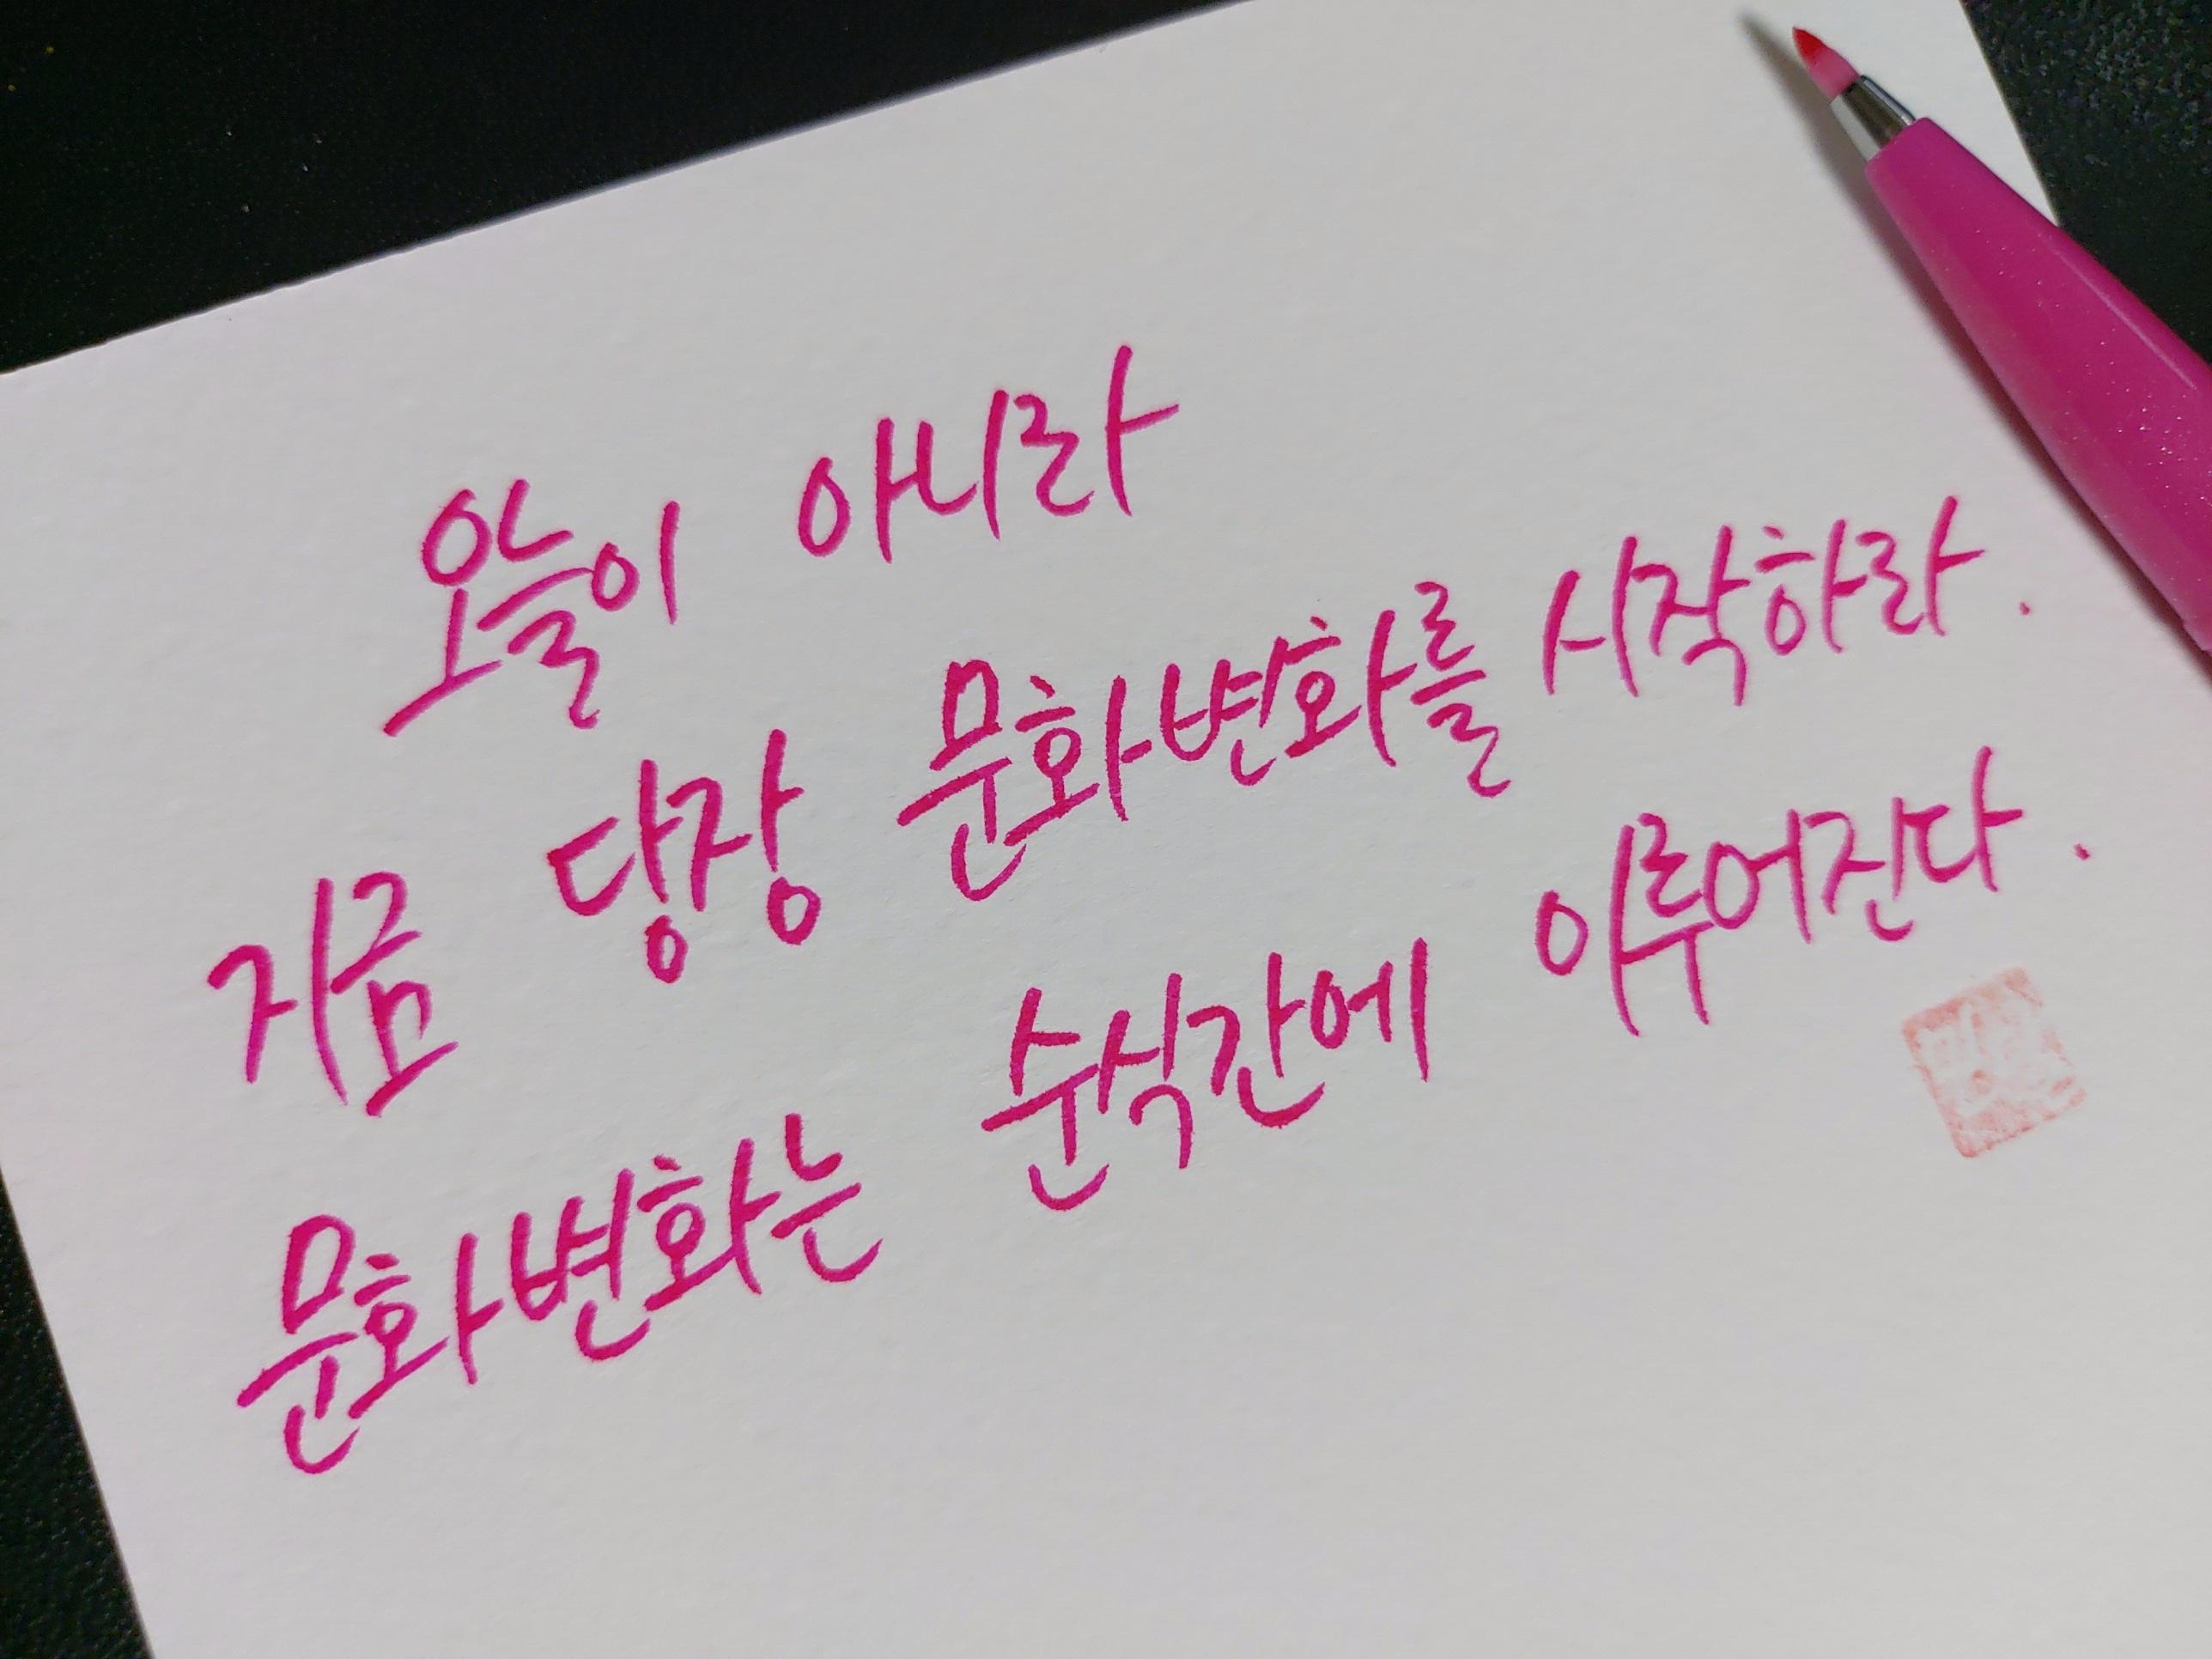 오늘이 아니라
지금 당장 문화변화를 시작하라.
문화변화는 순식간에 이루어진다.